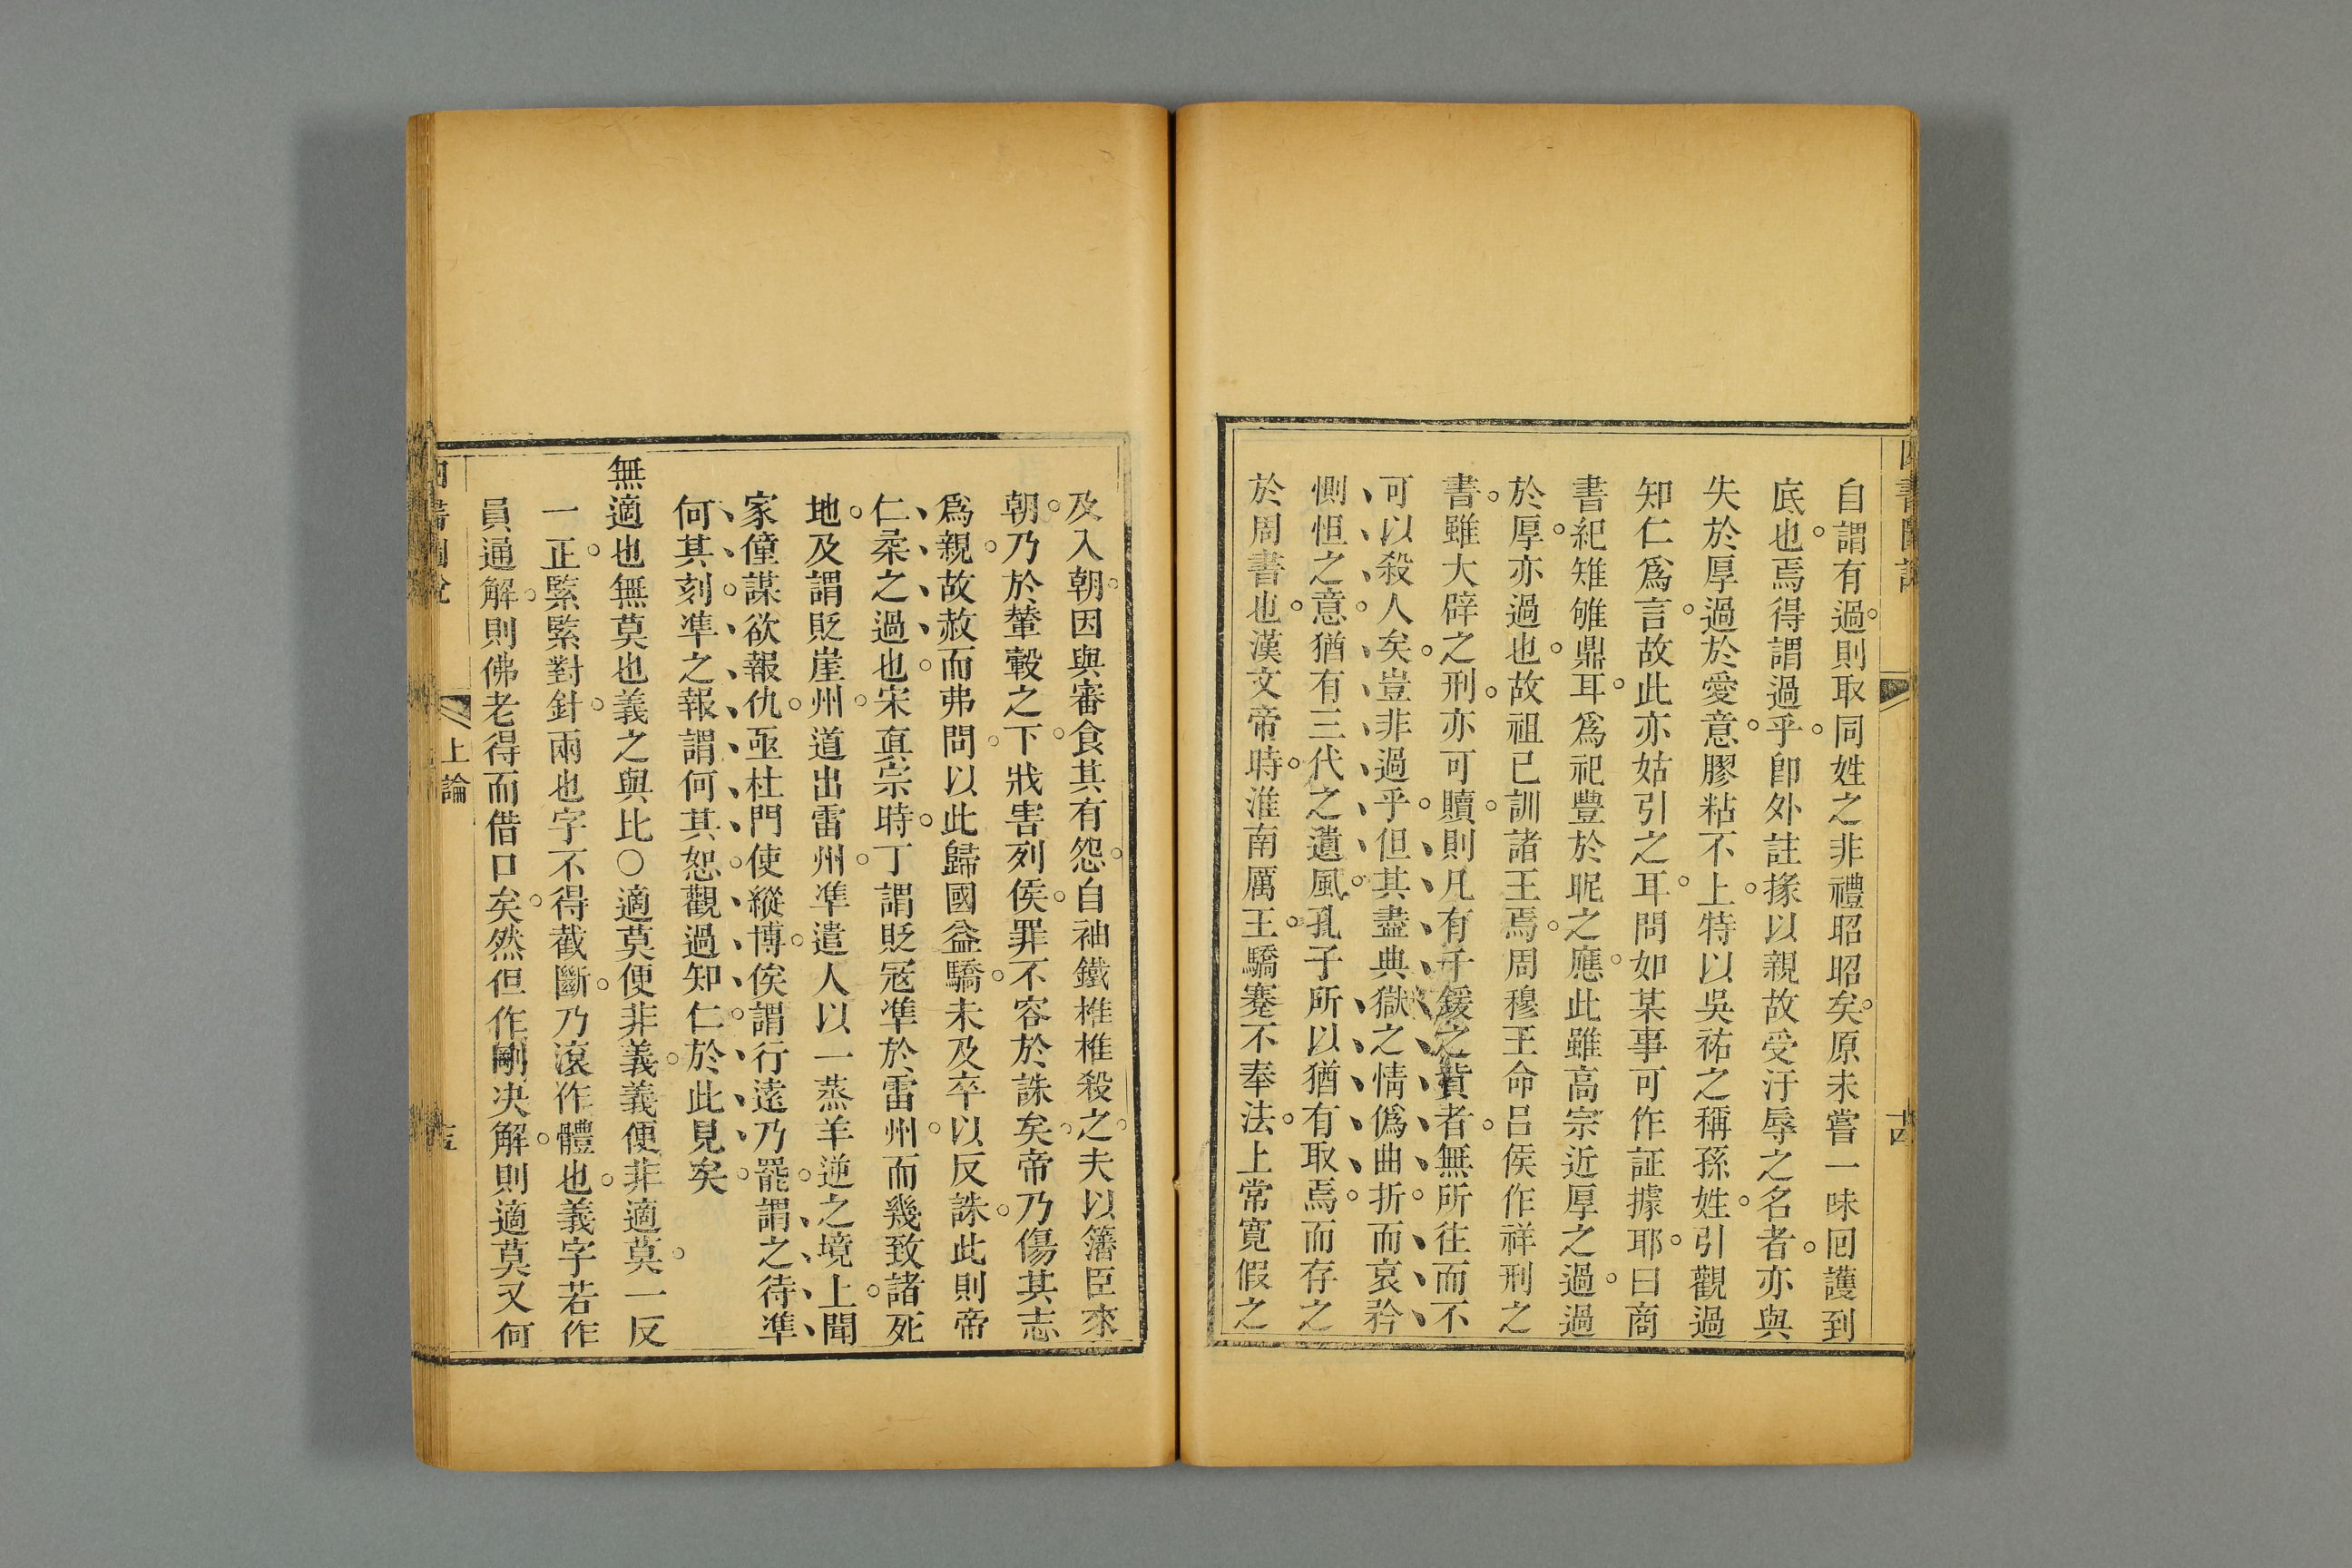 自謂有過則取同姓之非禮昭昭矣原未嘗一味囘護到
底也焉得謂過乎卽外註掾以親故受汙辱之名者亦與
失於厚過於愛意膠粘不上特以吳祐之稱孫姓引觀過
知仁爲言故此亦姑引之耳問如某事可作証據耶曰商
書紀雉雊鼎耳爲祀豐於昵之應此雖高宗近厚之過過
於厚亦過也故祖已訓諸王焉周穆王命呂侯作祥刑之
書雖大辟之刑亦可贖則凡有千鍰之貲者無所往而不
可以殺人矣豈非過乎但其盡典獄之情僞曲折而哀矜
惻怛之意猶有三代之遺風孔子所以猶有取焉而存之
於周書也漢文帝時淮南厲王驕蹇不奉法上常寬假之
十四
及入朝因與審食其有怨自袖鐵椎椎殺之夫以籓臣來
朝乃於輦轂之下戕害列侯罪不容於誅矣帝乃傷其志
爲親故赦而弗問以此歸國益驕未及卒以反誅此則帝
仁柔之過也宋眞宗時丁謂貶冦準於雷州而幾致諸死
地及謂貶崖州道出雷州準遣人以一蒸羊逆之境上聞
家僮謀欲報仇亟杜門使縱博俟謂行遠乃罷謂之待準
何其刻準之報謂何其恕觀過知仁於此見矣
無適也無莫也義之與比○適莫便非義義便非適莫一反
一正緊緊對針兩也字不得截斷乃滾作體也義字若作
員通解則佛老得而借口矣然但作剛决解則適莫又何
上論